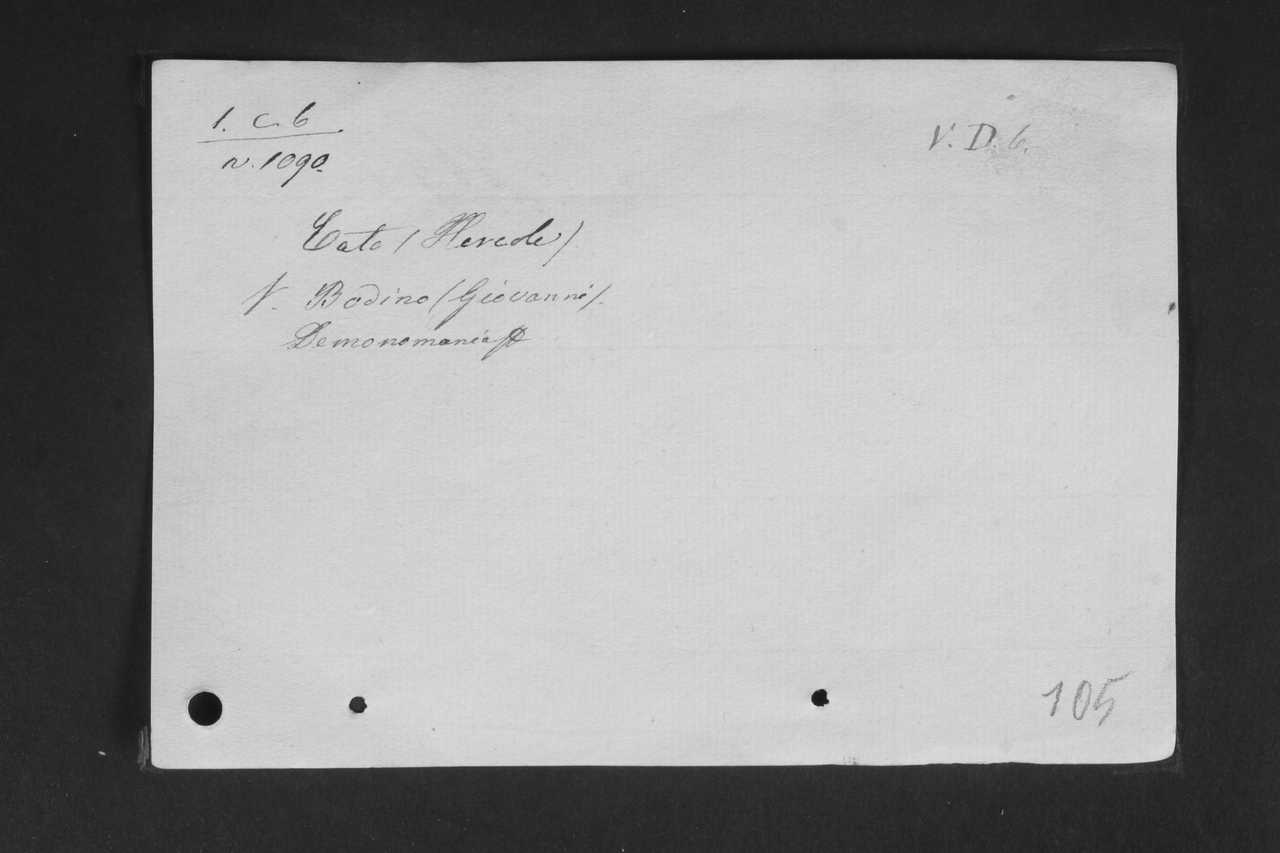 1. c. 6
V. D. 6.
n. 1090.
Cato (Hercole)
V. Bodino (Giovanni).
Demonomania
105